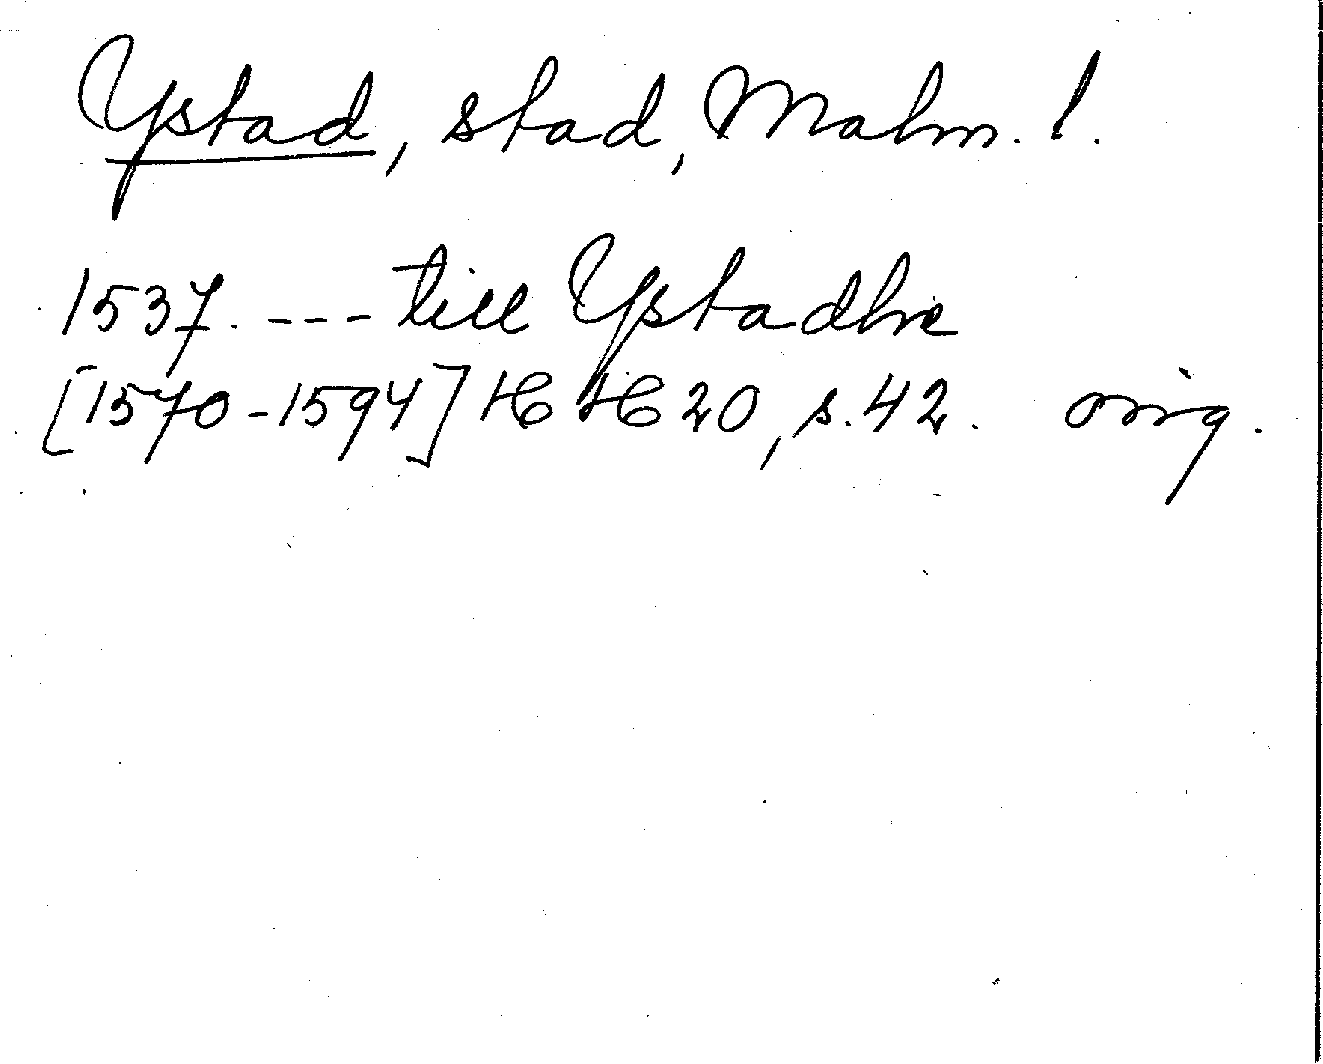 Ystad, stad, Malm. l.
1537. --- till Ystadhe
[1570-1594] HH 20, s. 42. orig.